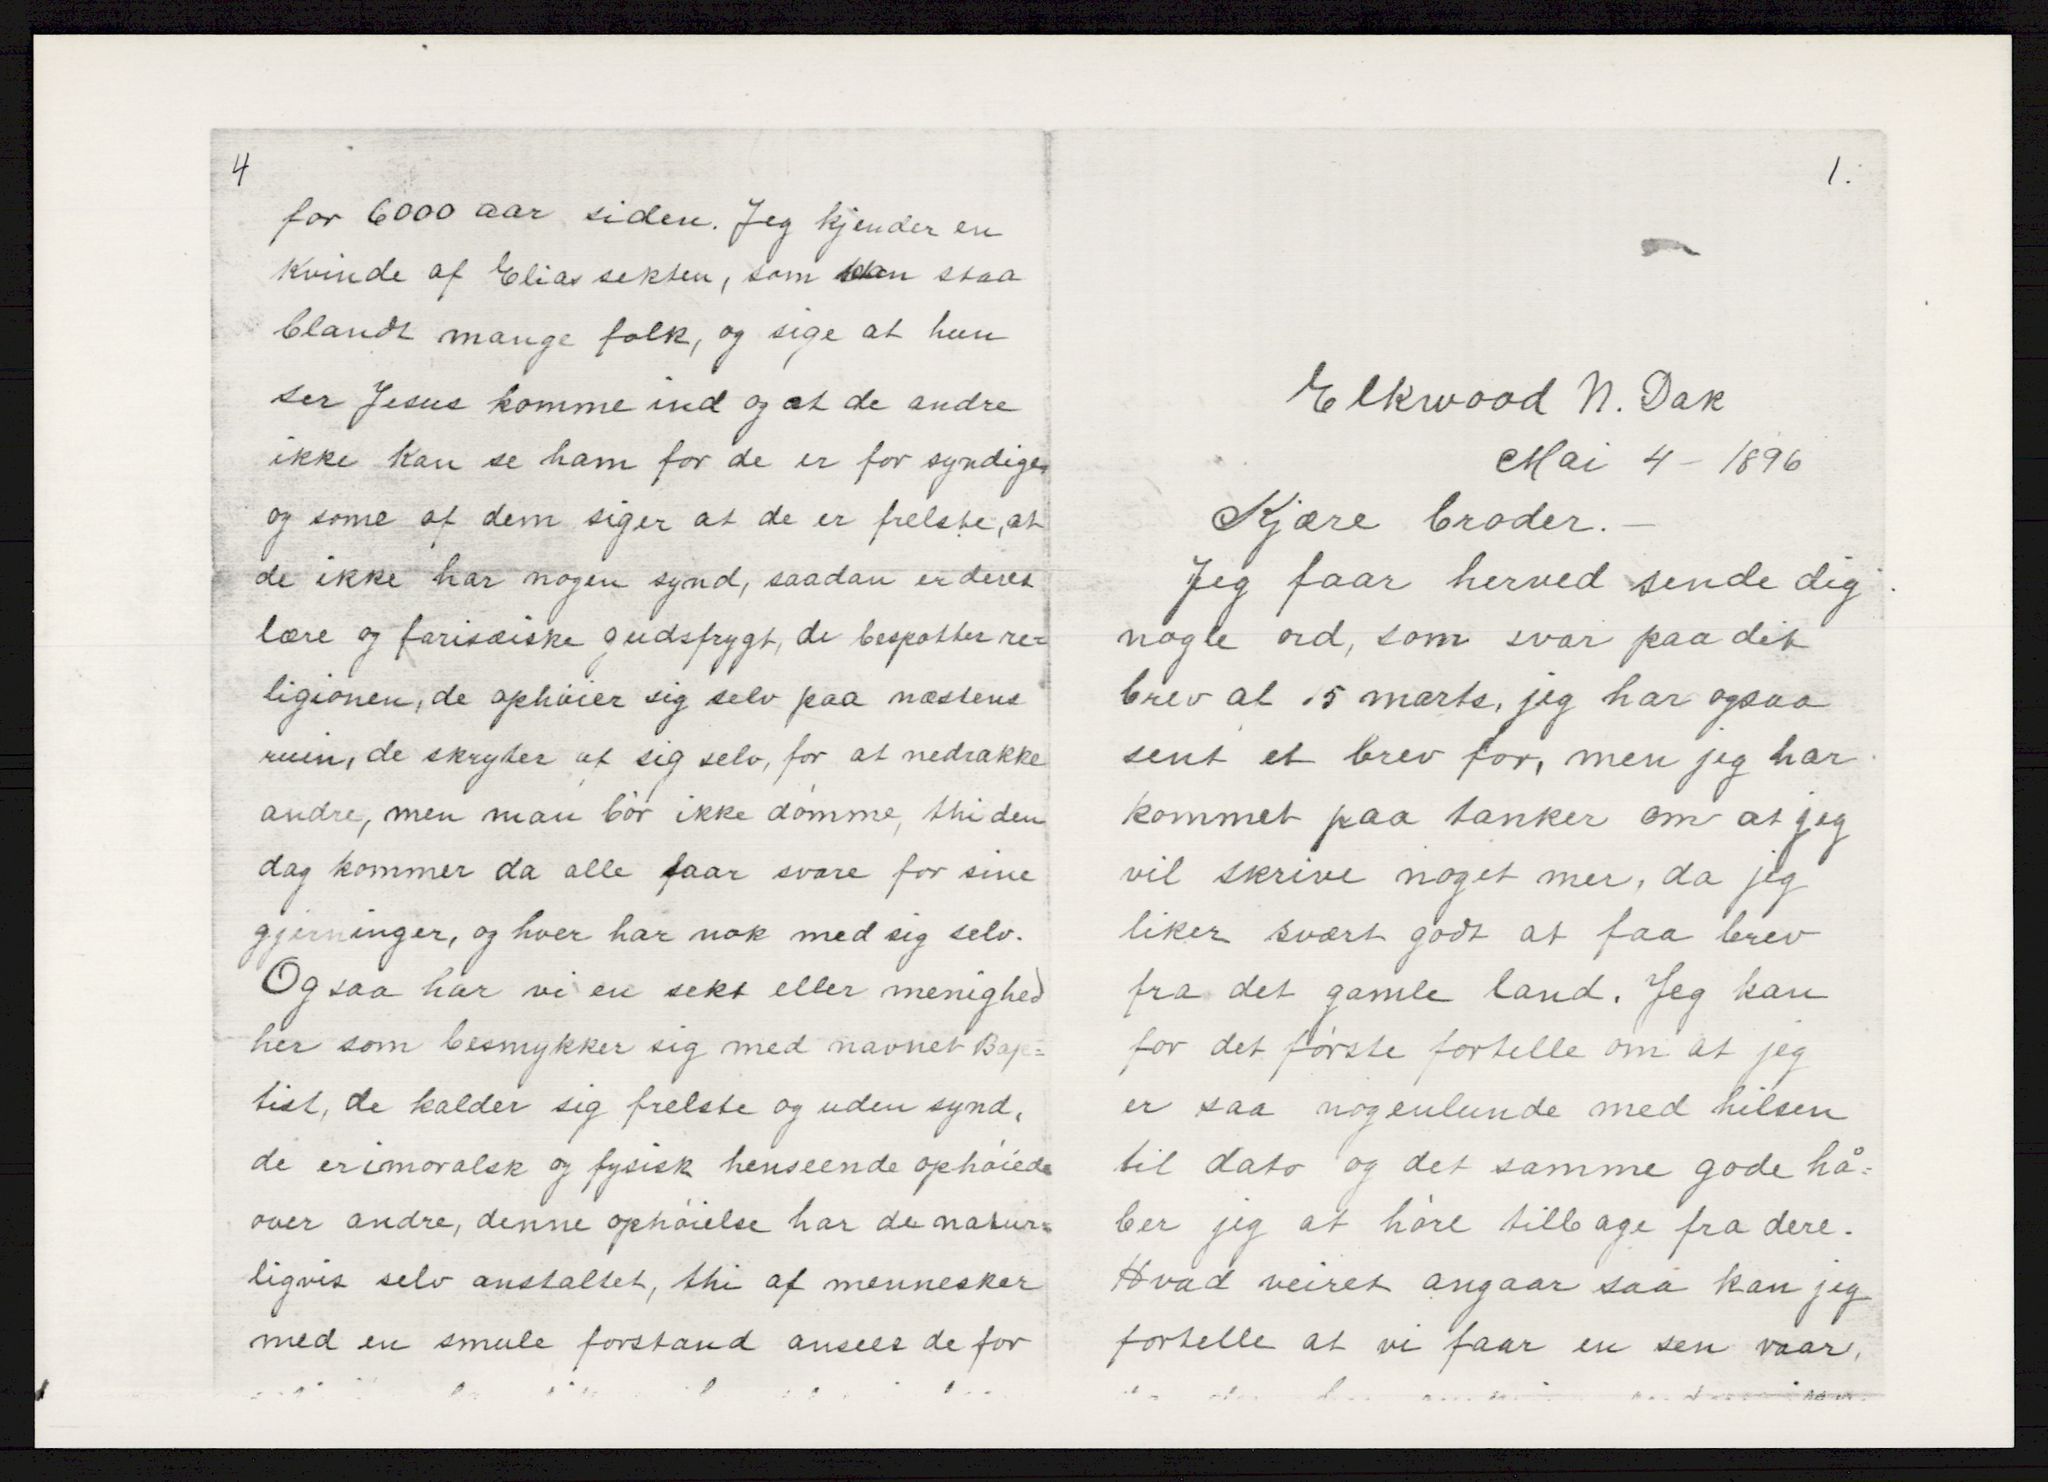 4
for 6000 aar siden. Jeg kjender en
kvinde af Elias sekten, som kan staa
blandt mange folk, og sige at hun
ser Jesus komme ind og at de andre
ikke kan se ham for de er for syndige,
og some af dem siger at de er frelste, at
de ikke har nogen synd, saadan er deres
lære og farisæiske gudsfrygt, de bespotter re-
ligionen, de ophöier sig selv paa næstens
ruin, de skryter af sig selv, for at nedrakke
andre, men man bör ikke dömme, thi den
dag kommer da alle faar svare for sine
gjerninger, og hver har nok med sig selv.
Og saa har vi en sekt eller menighed
her som besmykker sig med navnet Bap=
tist, de kalder sig frelste og uden synd,
de er i moralsk og fysisk henseende ophöiede
over andre, denne ophöielse har de natur=
ligvis selv anstaltet, thi af mennesker
med en smule forstand ansees de for
1.
Elkwood N. Dak
Mai 4 - 1896
Kjære broder. —
Jeg faar herved sende dig
nogle ord, som svar paa dit
brev at 15 marts, jeg har ogsaa
sent et brev for, men jeg har
kommet paa tanker om at jeg
vil skrive noget mer, da jeg
liker svært godt at faa brev
fra det gamle land. Jeg kan
for det förste fortelle om at jeg
er saa nogenlunde med hilsen
til dato og det samme gode hå=
ber jeg at höre tilbage fra dere.
Hvad veiret angaar saa kan jeg
fortelle at vi faar en sen vaar,